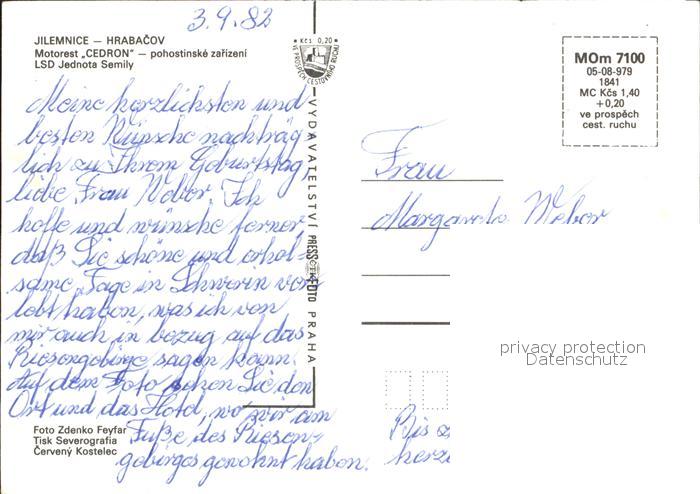 3.9.82
JILEMNICE – HRABAČOV
Motorest „CEDRON" – pohostinské zařízení
LSD Jednota Semily
Meine herzlichsten und
besten Wünsche nachträg
lich zu Ihrem Geburtstag,
liebe Frau Weber. Ich
hoffe und wünsche ferner,
daß Sie schöne und erhol=
same Tage in Schwerin ver
lebt haben, was ich von
mir auch in bezug auf das
Riesengebirge sagen kann.
Auf dem Foto sehen Sie den
Ort und das Hotel, wo wir am
Fuße des Riesen-
gebirges gewohnt haben.
Foto Zdenko Feyfar
Tisk Severografia
Červený Kostelec
Kčs 0,20
VE PROSPĚCH CESTOVNÍHO RUCHU
VYDAVATELSTVÍ PRESSFOTO PRAHA
MOm 7100
05-08-979
1841
MC Kčs 1,40
+0,20
ve prospěch
cest. ruchu
Frau
Margarete Weber
privacy protection
Datenschutz
Bis
herzl